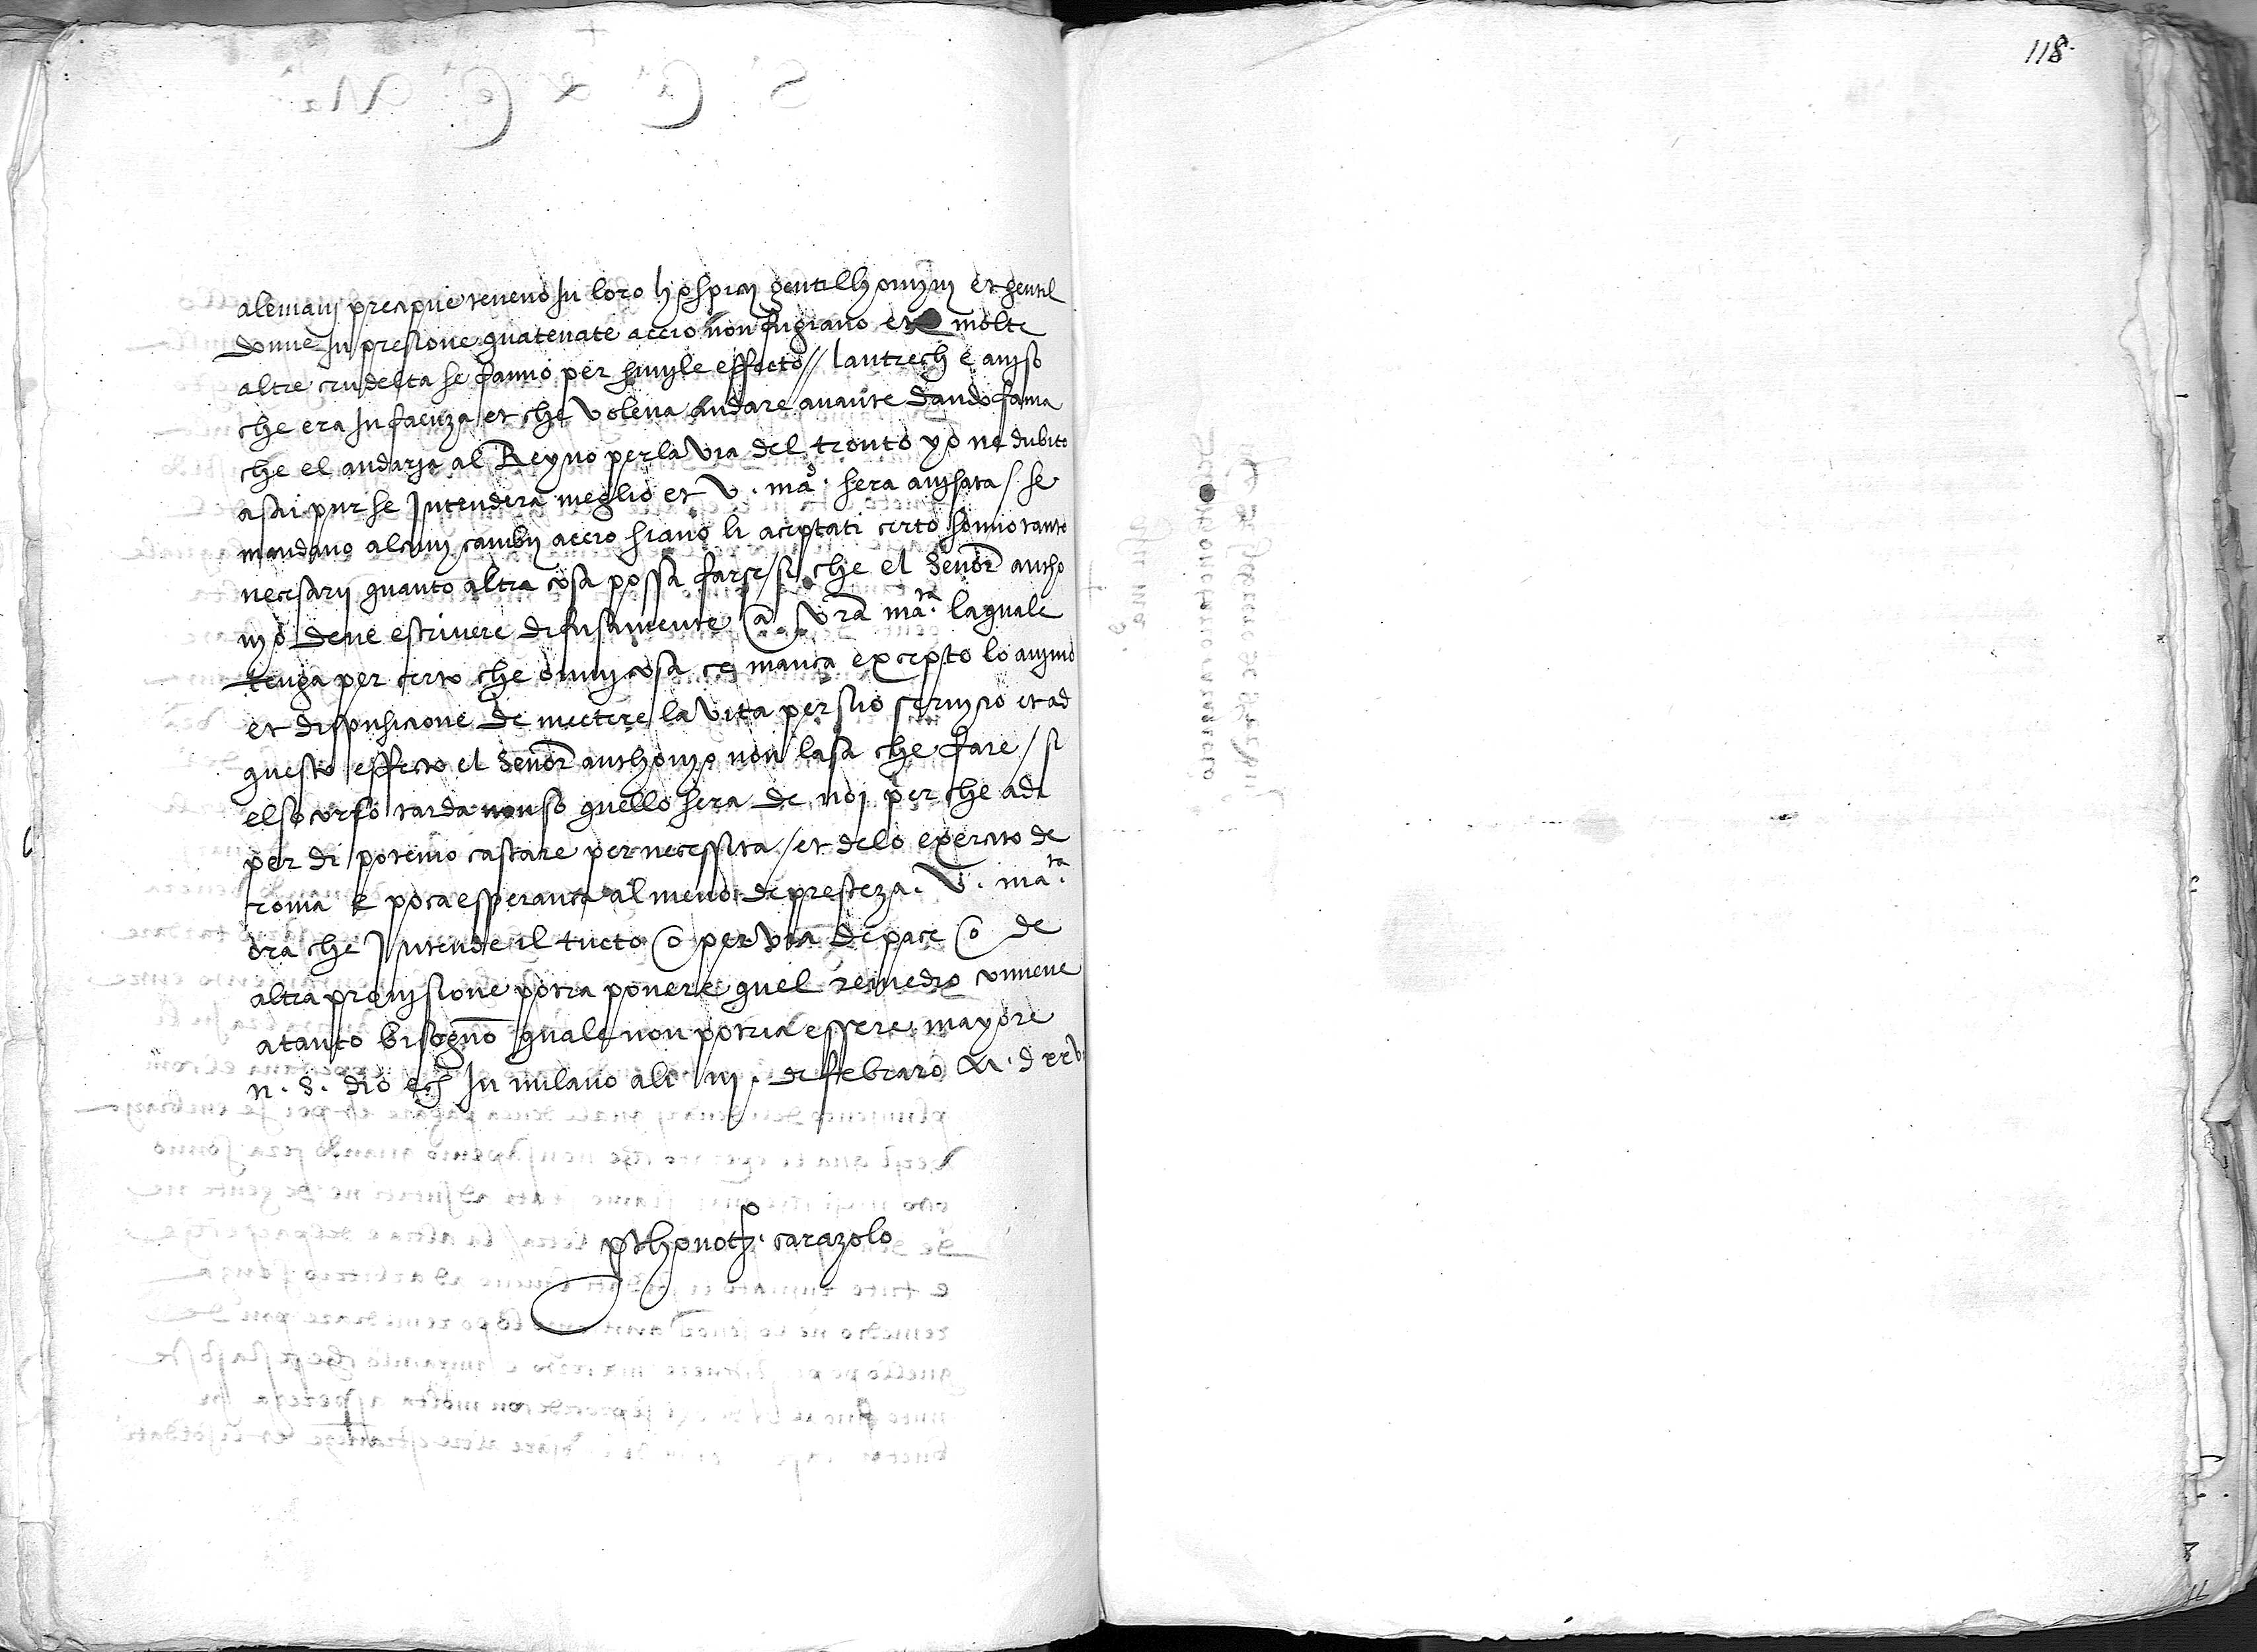 118.
alemanj precipue teneno In loro hospicij gentilhomjnj et gentil
donne In presione quatenate accio non fugiano et molte
altre crudelta se fanno per simyle effecto // lautrech e aujso
che era In faenza et che voleua andare auante dando fama
che el andarja al Reyno per la via del tronto yo ne dubito
asai pur se Intendera meglio et V. ma. sera aujsata / se
mandano alcunj cambij accio siano li aceptati certo sonno tanto
necesarij quanto altra cosa possa farse / si che el Senor antho
njo deue escriuere difusamente a vra mata. laquale
tenga per certo che omnj cosa ce manca excepto lo anjmo
et disposicione de mectere la vita per suo serujcio et ad
questo effecto el Senor anthonjo non lasa che fare / si
el socorso tarda non so quello sera de noj per che a di
per di potemo castare per necessita / et delo exercito de
roma e poca esperanca al meno de presteza. V. mata.
ora che Intende il tucto o per via de pace o de
altra proujsione potra ponere quel remedio conuene
a tanto bisogno quale non potria essere mayore
n. s. dio etc In milano ali iij. de febraro M. D xxvij
pthonotro. carazolo